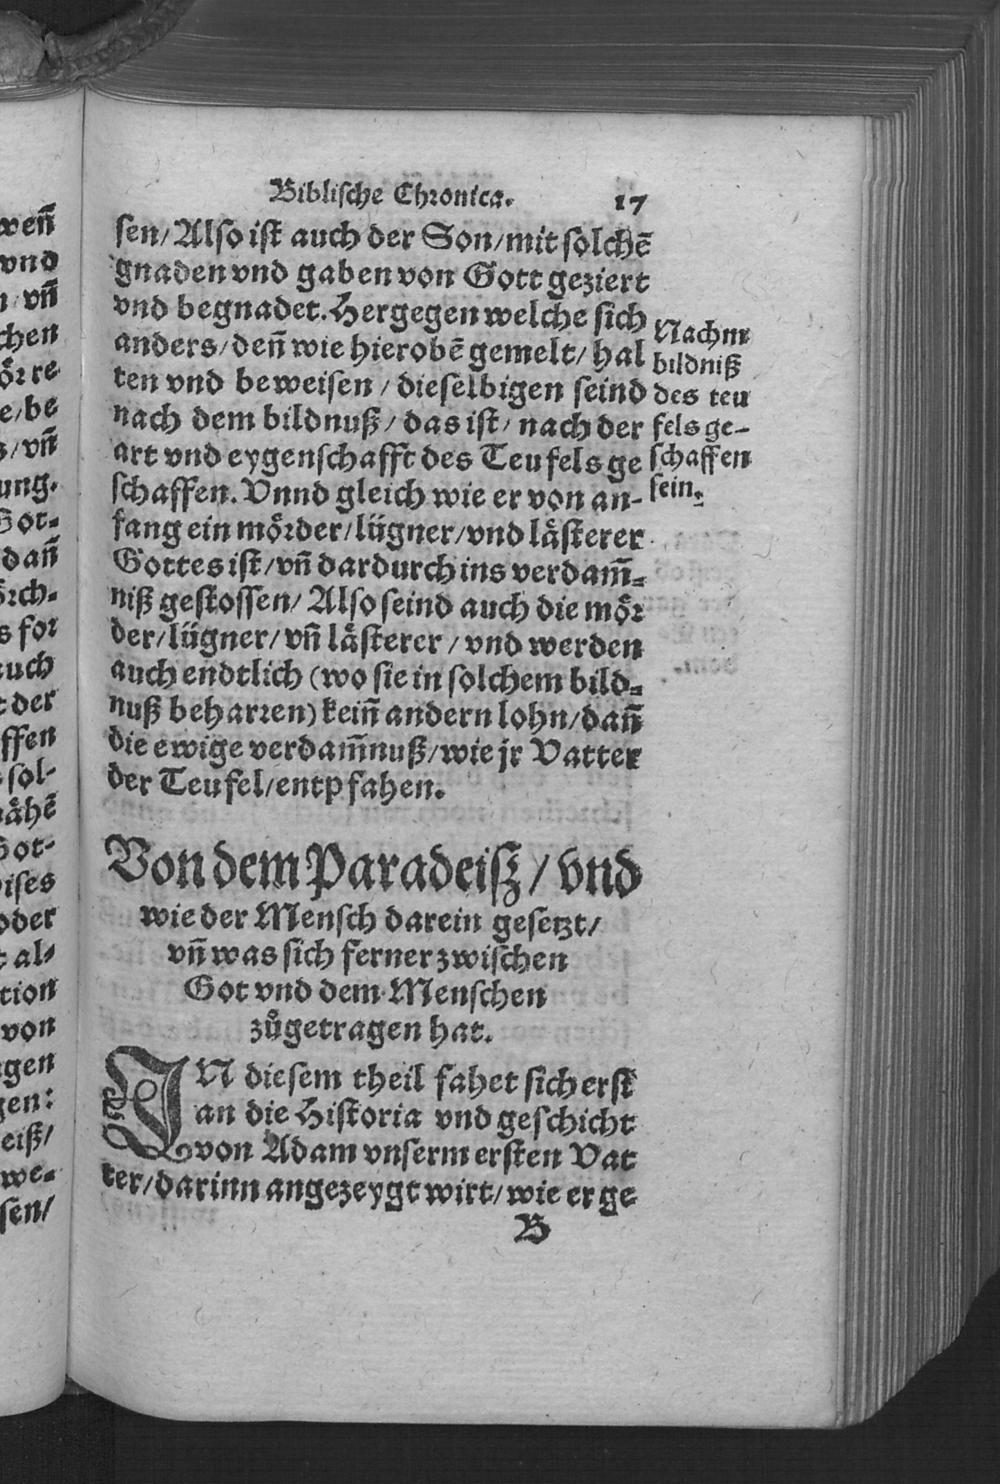 Biblische Chronica. 17
sen/Also ist auch der Son/mit solchẽ
gnaden vnd gaben von Gott geziert
vnd begnadet. Hergegen welche sich
anders/denn̄ wie hierobẽ gemelt/hal
ten vnd beweisen/dieselbigen seind
nach dem bildnuß/das ist/nach der
art vnd eygenschafft des Teufels ge
schaffen. Vnnd gleich wie er von an-
fang ein moͤrder/luͤgner/vnd laͤsterer
Gottes ist/vn̄ dardurch ins verdam̄-
niß gestossen/Also seind auch die moͤr
der/luͤgner/vn̄ laͤsterer/vnd werden
auch endtlich (wo sie in solchem bild-
nuß beharren) kein̄ andern lohn/dan̄
die ewige verdam̄nuß/wie jr Vatter
der Teufel/entpfahen.
Nachm
bildniß
des teu
fels ge-
schaffen
sein.
Von dem Paradeiß/vnd
wie der Mensch darein gesetzt/
vn̄ was sich ferner zwischen
Got vnd dem Menschen
zůgetragen hat.
IN diesem theil fahet sich erst
an die Historia vnd geschicht
von Adam vnserm ersten Vat
ter/darinn angezeygt wirt/wie er ge
B
wen̄
vnd
vn̄
chen
oͤrre
e/be
/vn̄
ung.
Got-
dan̄
oͤrch-
s for
auch
der
ffen
sol-
aͤhẽ
Got-
ises
oder
al-
tion
von
gen
gen:
eiß/
we-
sen/